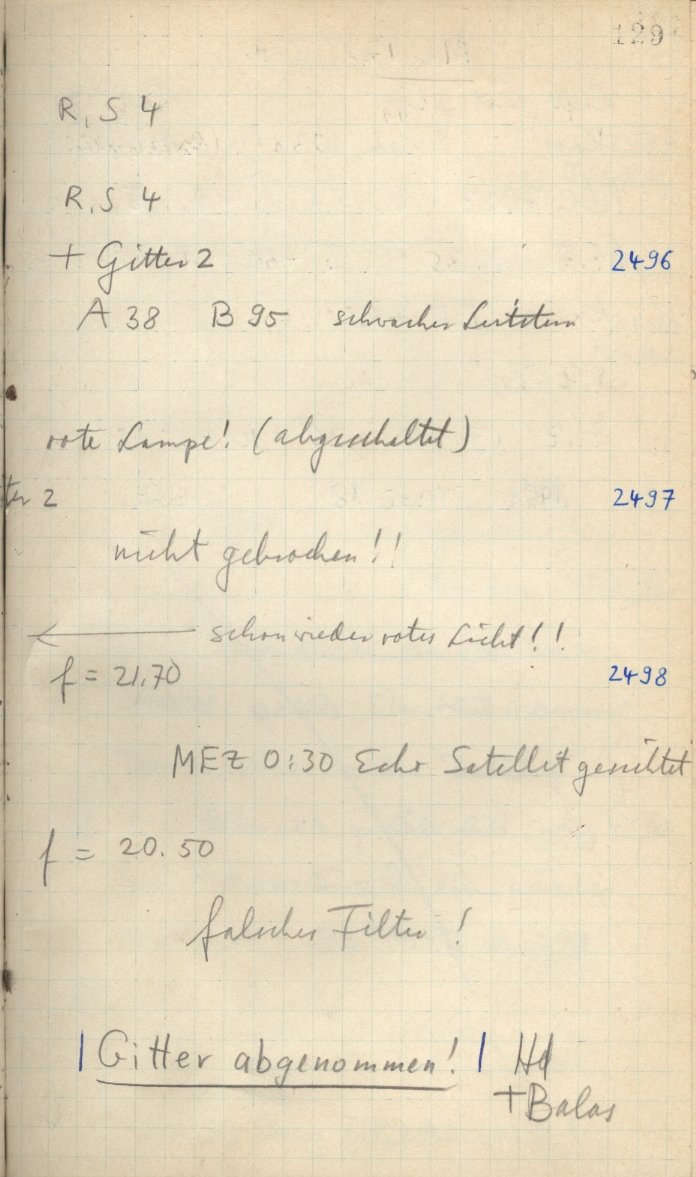 129
R, S 4
R, S 4
+ Gitter 2 2496
A 38 B 95 schwacher Leitstern
rote Lampe! (abgeschaltet)
ter 2 2497
nicht gebrochen!!
schon wieder rotes Licht!!
f = 21.70 2498
MEZ 0:30 Echo Satellit gesichtet
f = 20.50
falsches Filter!
| Gitter abgenommen! | Hd
+ Balas